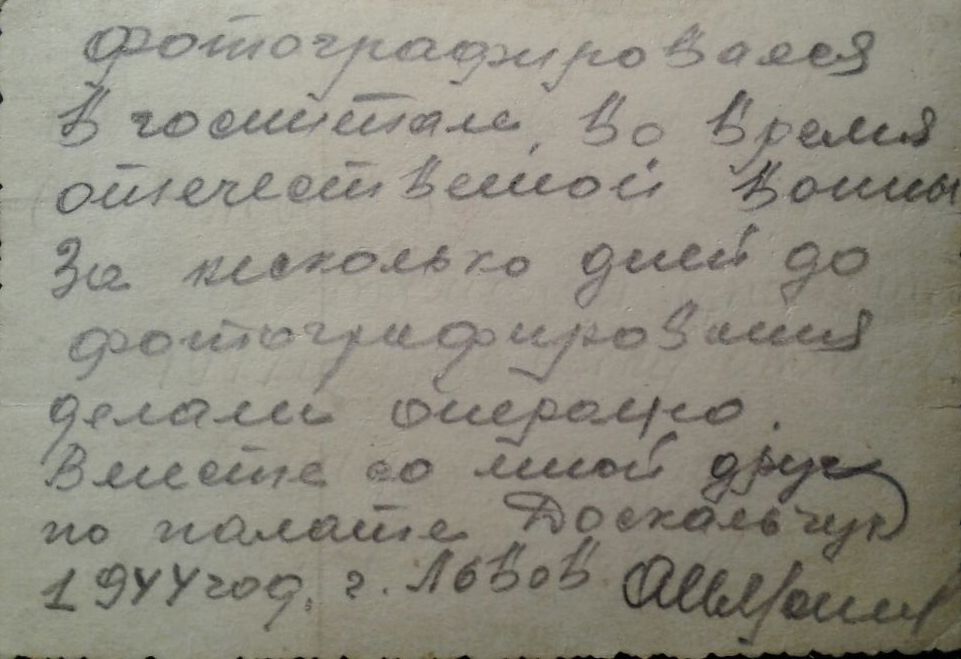 фотографировался
в госпитале, во время
отечественной войны
За несколько дней до
фотографирования
делали операцию.
Вместе со мной друг
по палате Доскальчук
1944 год. г. Львов